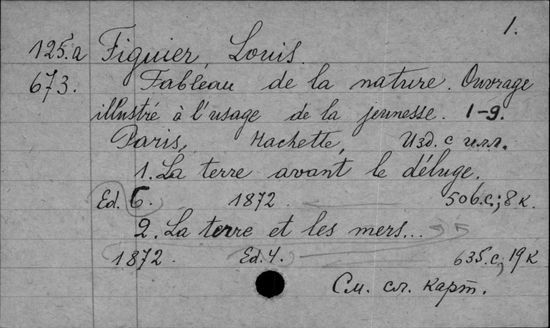 1.
125.a Figuier, Louis.
673. Tableau de la nature. Ouvrage
illustré à l'usage de la jeunesse. 1-9.
Paris, Hachette, Изд. с илл.
1. La terre avant le déluge.
Ed. 6. 1872 506 с.; 8 к.
2. La terre et les mers...
1872. Ed. 4. 635 с., 19 к
См. сл. карт.